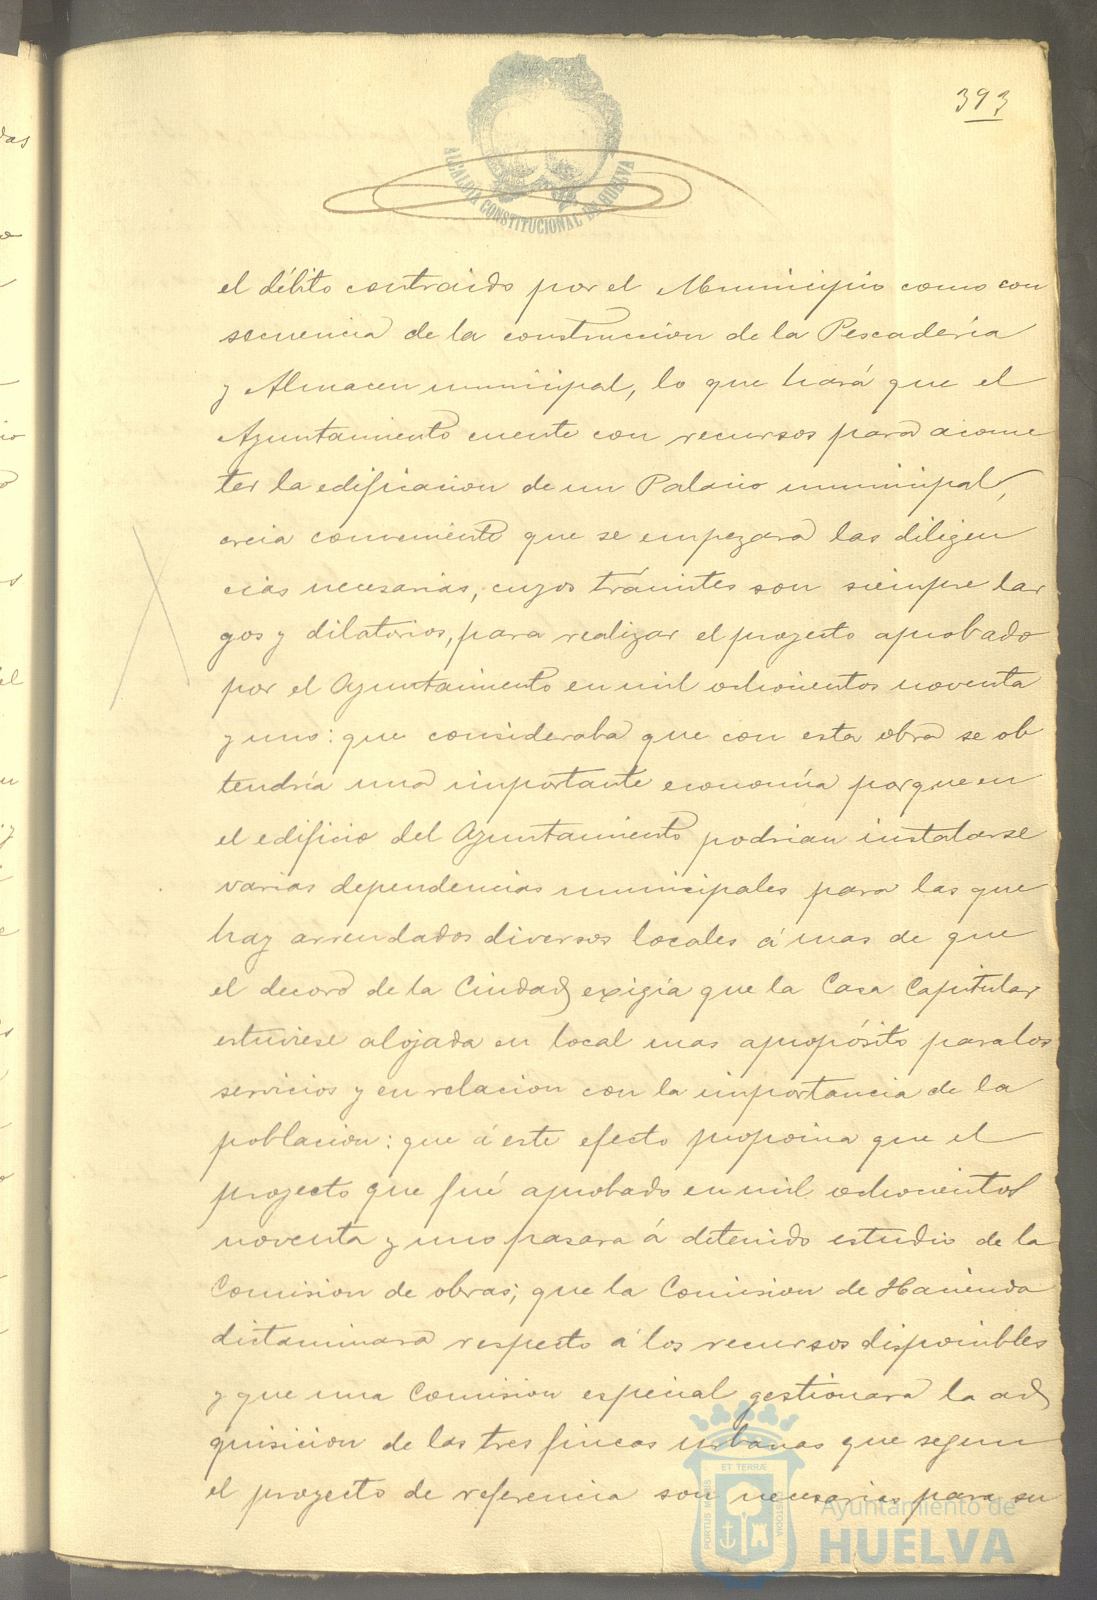 393
ALCALDIA CONSTITUCIONAL DE HUELVA
el débito contraido por el Municipio como con
secuencia de la construccion de la Pescadería
y Almacen municipal, lo que hará que el
Ayuntamiento cuente con recursos para acome
ter la edificacion de un Palacio municipal,
creia conveniente que se empezara las diligen
cias necesarias, cuyos trámites son siempre lar
gos y dilatorios, para realizar el proyecto aprobado
por el Ayuntamiento en mil ochocientos noventa
y uno: que consideraba que con esta obra se ob
tendría una importante economía porque en
el edificio del Ayuntamiento podrian instalarse
varias dependencias municipales para las que
hay arrendados diversos locales á mas de que
el decoro de la Ciudad exigía que la Casa Capitular
estuviese alojada en local mas apropósito para los
servicios y en relacion con la importancia de la
poblacion: que á este efecto proponia que el
proyecto que fué aprobado en mil ochocientos
noventa y uno pasara á detenido estudio de la
Comision de obras; que la Comision de Hacienda
dictaminara respecto á los recursos disponibles
y que una Comision especial gestionara la ad
quisicion de las tres fincas urbanas que segun
el proyecto de referencia son necesarias para su
PORTUS MARIS
ET TERRÆ
CUSTODIA
Ayuntamiento de
HUELVA